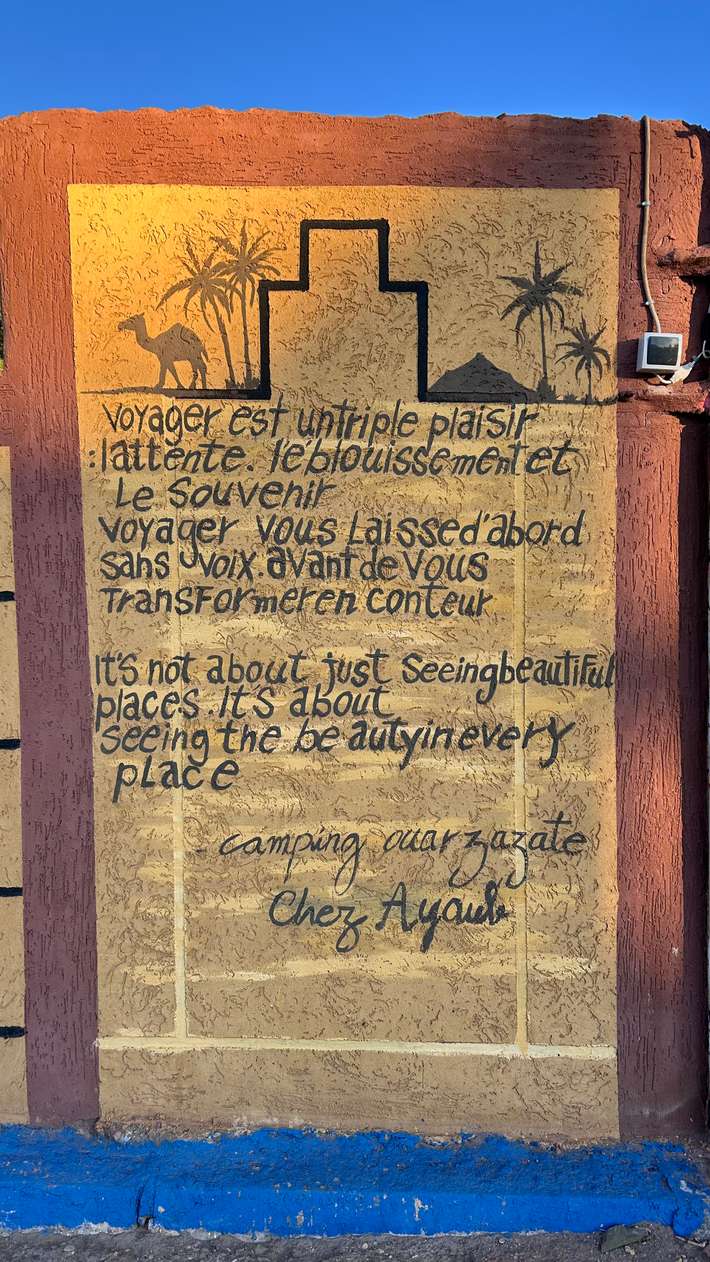 voyager est untriple plaisir
:lattente. l'éblouissement et
Le Souvenir
voyager vous Laissed'abord
sans voix.avant de vous
TransFormeren conteur
It's not about just Seeingbeautiful
places. It's about
seeing the be autyinevery
place
- camping ouarzazate
Chez Ayoub